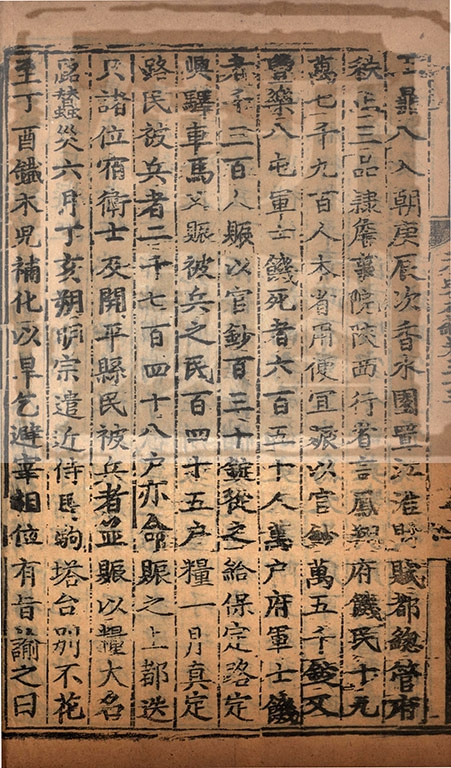 王畢八入朝庚辰次香水園置江淮財賦都總管府
秩正三品隷詹事院陜西行省言鳳翔府饑民十九
萬七千九百人本省用便宜賑以官鈔萬五千錠又
豐樂八屯軍士饑死者六百五十人萬户府軍士饑
者千三百人賑以官鈔百三十錠從之給保定路定
興驛車馬又賑被兵之民百四十五户糧一月真定
路民被兵者二千七百四十八户亦命賑之上都迭
只諸位宿衛士及開平縣民被兵者並賑以糧大名
路蠶災六月丁亥朔明宗遣近侍馬駒塔台别不花
至丁酉鐡木兒補化以旱乞避宰相位有旨諭之曰